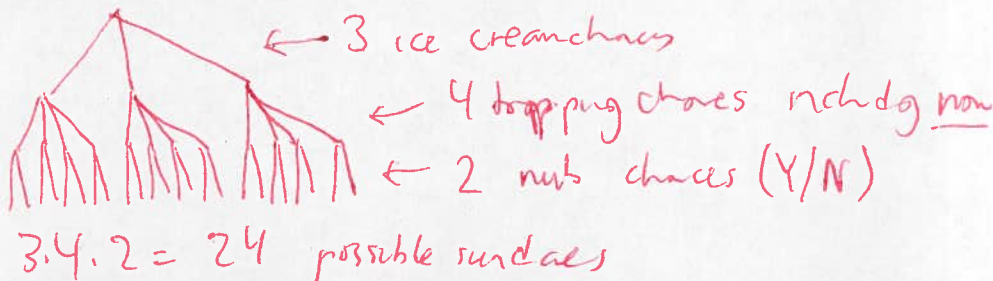 ← 3 ice cream choices
← 4 topping choices including none
← 2 nuts choices (Y/N)
3.4.2 = 24 possible sundaes